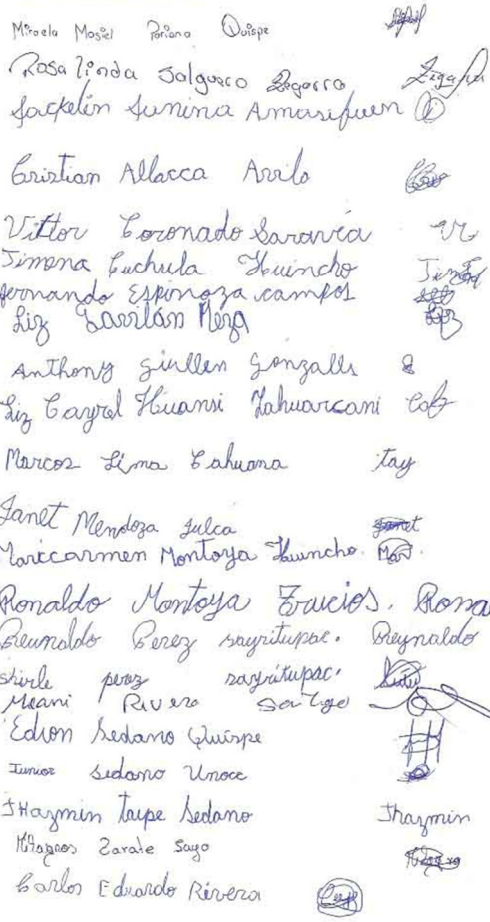 Micaela Masiel Pariona Quispe
Rosalinda Salguero Zegarra
Jackelin Sunina Amasifuen
Cristian Allacca Arrilo
Vittor Coronado Saravia
Jimena Cuchula Huincho
fernando Espinoza campos
Liz Gavilán Meza
Anthony Guillen Gonzalls
Liz Cayrel Huansi Yahuarcani
Marcos Lima Cahuana tay
Janet Mendoza Julca Janet
Maricarmen Montoya Huincho. Mar
Ronaldo Montoya Rona
Reunaldo Perez sayritupac. Reynaldo
shirle perez sayritupac.
Meani Rivera
Edson Sedano Quispe
Iunior Sedano Unoce
Jhazmin taipe Sedano Jhazmin
Milagros Zarate Suyo
Carlos Eduardo Rivera